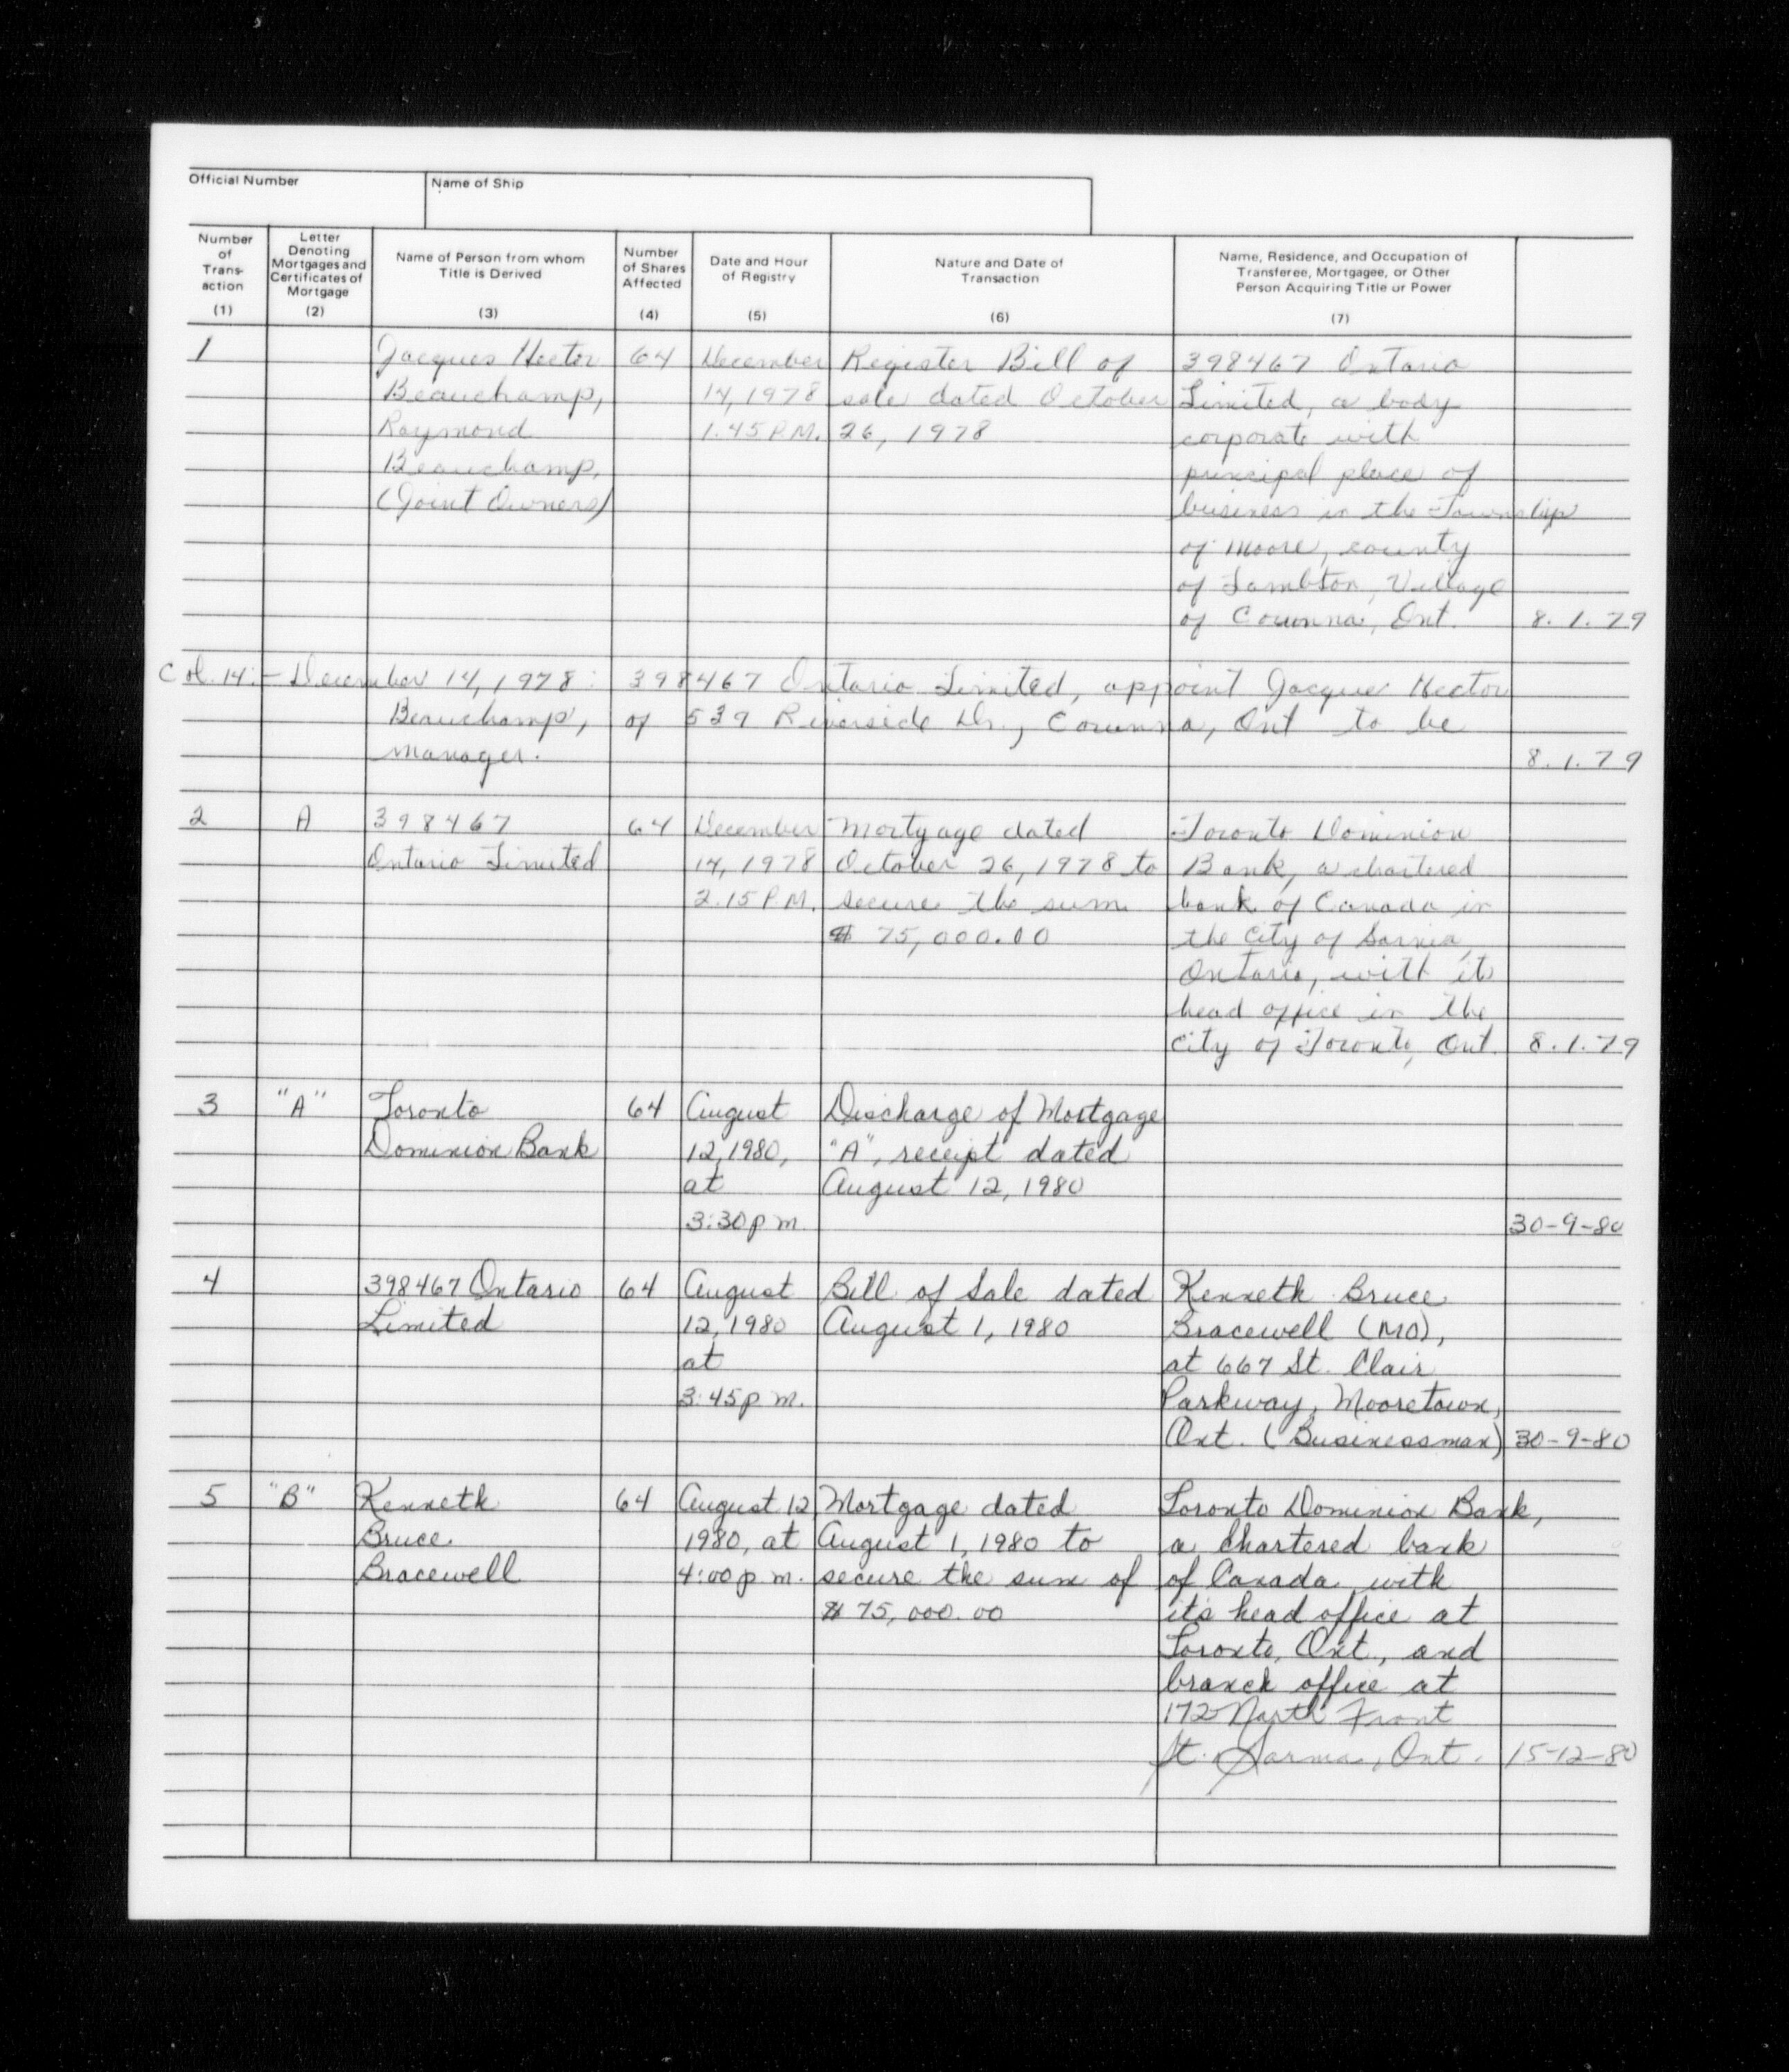 Official Number
Name of Ship
Number of Trans-action (1)
Letter Denoting Mortgages and Certificates of Mortgage (2)
Name of Person from whom Title is Derived (3)
Number of Shares Affected (4)
Date and Hour of Registry (5)
Nature and Date of Transaction (6)
Name, Residence, and Occupation of Transferee, Mortgagee, or Other Person Acquiring Title or Power (7)
1 Jacques Hector 64 December Register Bill of 398467 Ontario
Beauchamp, 14, 1978 sale dated October Limited, a body
Raymond 1.45 P.M. 26, 1978 corporate with
Beauchamp, principal place of
(Joint Owners) business in the Township
of Moore, county
of Lambton, Village
of Corunna, Ont. 8.1.79
Col. 14:- December 14, 1978: 398467 Ontario Limited, appoint Jacque Hector
Beauchamp, of 539 Riverside Dr., Corunna, Ont to be
manager. 8.1.79
2 A 398467 64 December Mortgage dated Toronto Dominion
Ontario Limited 14, 1978 October 26, 1978 to Bank, a chartered
2.15 P.M. secure the sum bank of Canada in
$ 75,000.00 the City of Sarnia,
Ontario, with it
head office in the
City of Toronto, Ont. 8.1.79
3 "A" Toronto 64 August Discharge of Mortgage
Dominion Bank 12, 1980, "A", receipt dated
at August 12, 1980
3:30 p.m. 30-9-80
4 398467 Ontario 64 August Bill of Sale dated Kenneth Bruce
Limited 12, 1980 August 1, 1980 Bracewell (MO),
at at 667 St. Clair
3:45 p.m. Parkway, Mooretown,
Ont. (Businessman) 30-9-80
5 "B" Kenneth 64 August 12 Mortgage dated Toronto Dominion Bank,
Bruce 1980, at August 1, 1980 to a Chartered bank
Bracewell 4:00 p.m. secure the sum of of Canada with
$ 75,000.00 its head office at
Toronto, Ont., and
branch office at
172 North Front
St. Sarnia, Ont. 15-12-80